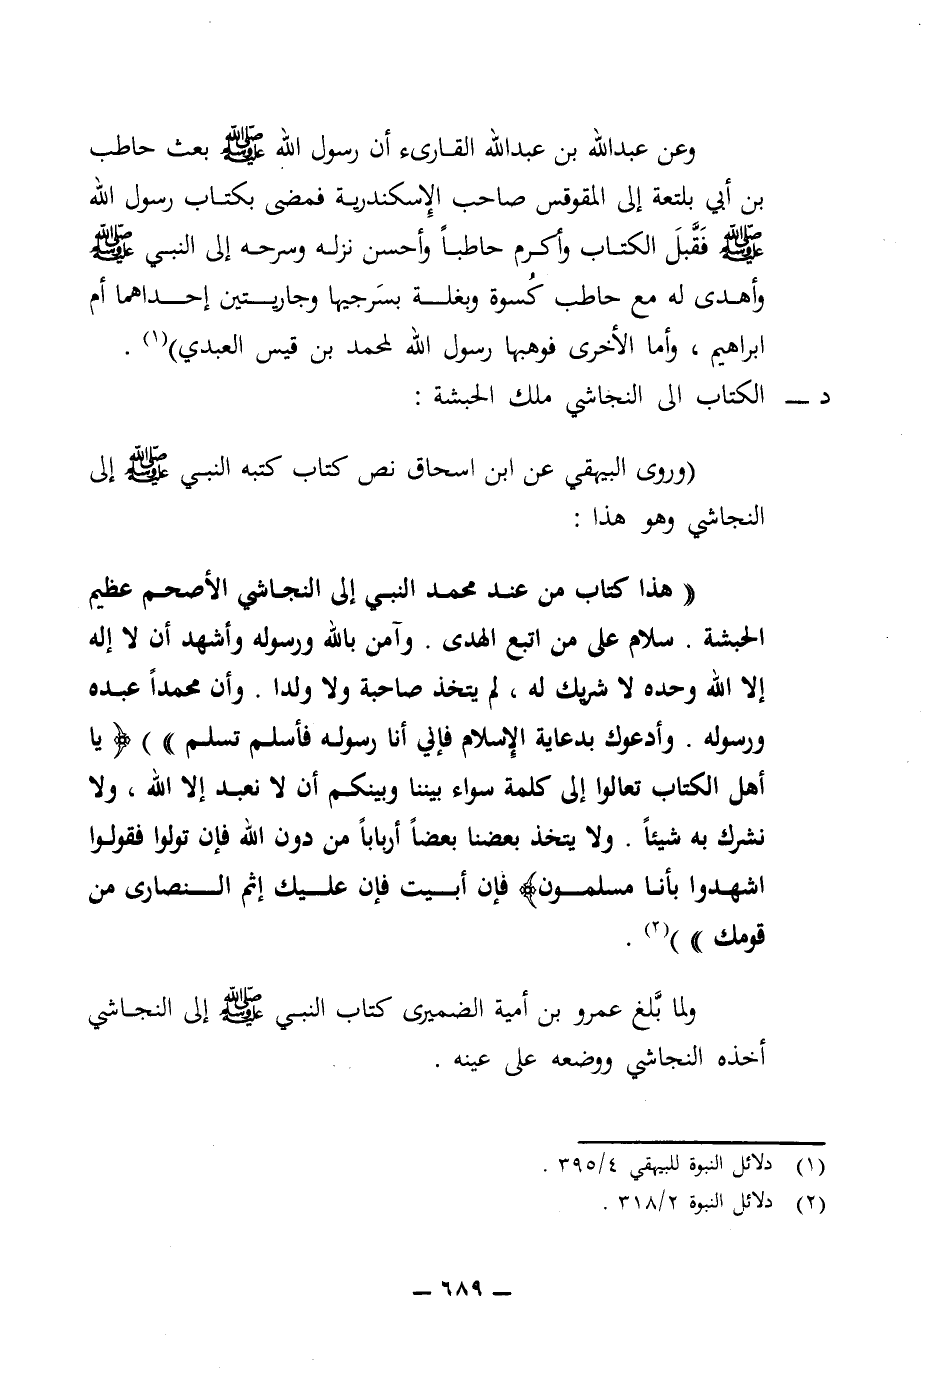 وعن عبدالله بن عبدالله القارىء أن رسول الله ﷺ بعث حاطب
بن أبي بلتعة إلى المقوقس صاحب الإسكندرية فمضى بكتاب رسول الله
ﷺ فَقَّبلَ الكتاب وأكرم حاطباً وأحسن نزله وسرحه إلى النبي ﷺ
وأهدى له مع حاطب كُسوة وبغلة بسَرجيها وجاريتين إحداهما أم
ابراهيم ، وأما الأخرى فوهبها رسول الله لمحمد بن قيس العبدي)(١) .
د ــ الكتاب الى النجاشي ملك الحبشة :
(وروى البيهقي عن ابن اسحاق نص كتاب كتبه النبي ﷺ إلى
النجاشي وهو هذا :
« هذا كتاب من عند محمد النبي إلى النجاشي الأصحم عظيم
الحبشة . سلام على من اتبع الهدى . وآمن بالله ورسوله وأشهد أن لا إله
إلا الله وحده لا شريك له ، لم يتخذ صاحبة ولا ولدا . وأن محمداً عبده
ورسوله . وأدعوك بدعاية الإسلام فإني أنا رسوله فأسلم تسلم » ) ﴿ يا
أهل الكتاب تعالوا إلى كلمة سواء بيننا وبينكم أن لا نعبد إلا الله ، ولا
نشرك به شيئاً . ولا يتخذ بعضنا بعضاً أرباباً من دون الله فإن تولوا فقولوا
اشهدوا بأنا مسلمون﴾ فإن أبيت فإن عليك إثم النصارى من
قومك » )(٢) .
ولما بَّلغ عمرو بن أمية الضميرى كتاب النبي ﷺ إلى النجاشي
أخذه النجاشي ووضعه على عينه .
(١) دلائل النبوة للبيهقي ٣٩٥/٤ .
(٢) دلائل النبوة ٣١٨/٢ .
ــ ٦٨٩ ــ